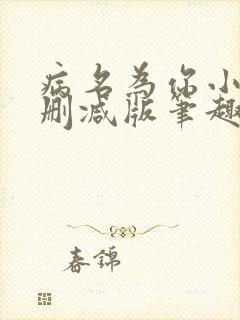 病名为你小
删减版笔趣
春锦